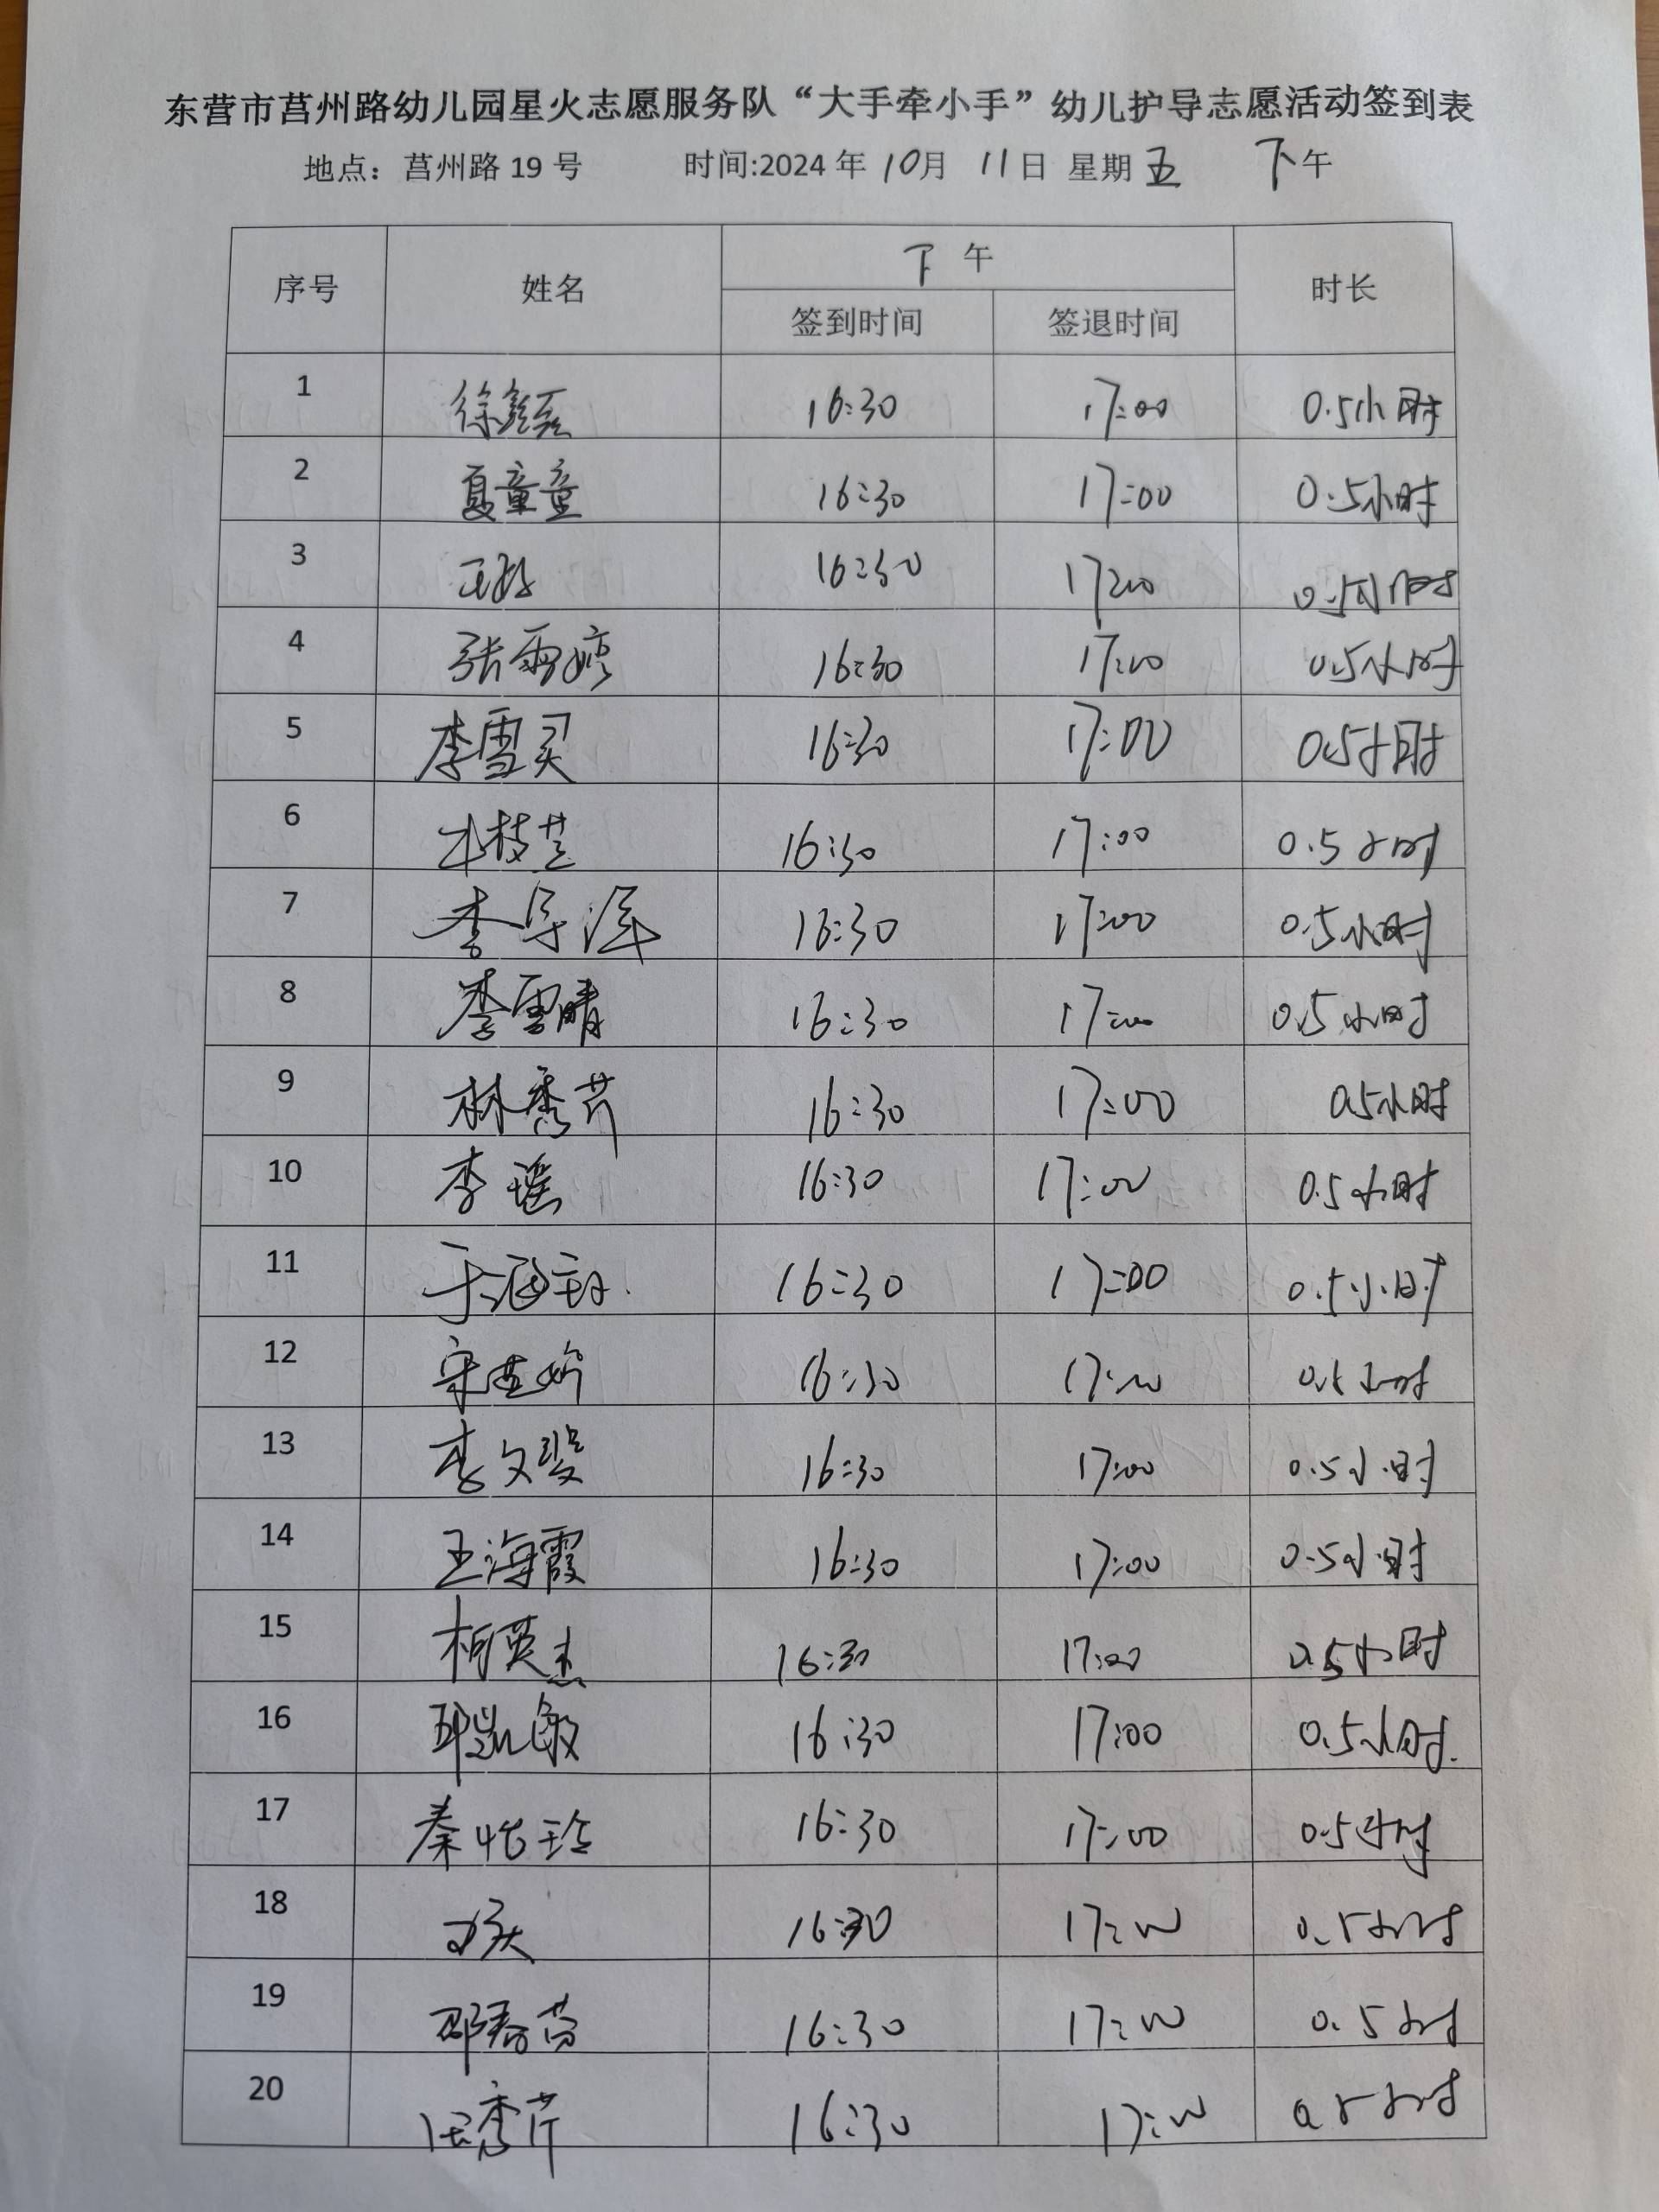 东营市莒州路幼儿园星火志愿服务队“大手牵小手”幼儿护导志愿活动签到表
地点：莒州路 19 号 时间:2024 年 10月 11日 星期 五 下午
序号 姓名 下 午 时长
签到时间 签退时间
1 16:30 17:00 0.5小时
2 夏童童 16:30 17:00 0.5小时
3 16:30 17:00 0.5小时
4 张雪婷 16:30 17:00 0.5小时
5 李雪灵 16:30 17:00 0.5小时
6 16:30 17:00 0.5小时
7 16:30 17:00 0.5小时
8 李雪晴 16:30 17:00 0.5小时
9 林秀芹 16:30 17:00 0.5小时
10 李瑶 16:30 17:00 0.5小时
11 16:30 17:00 0.5小时
12 16:30 17:00 0.5小时
13 李文斐 16:30 17:00 0.5小时
14 王海霞 16:30 17:00 0.5小时
15 柯英杰 16:30 17:00 0.5小时
16 邱凯敏 16:30 17:00 0.5小时
17 秦怡玲 16:30 17:00 0.5小时
18 16:30 17:00 0.5小时
19 邵春苗 16:30 17:00 0.5小时
20 16:30 17:00 0.5小时